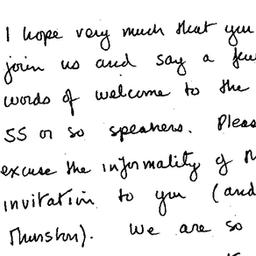 I hope very much that you
join us and say a few
words of welcome to the
55 or so speakers. Pleas
excuse the informality of
invitation to you (and
Thurston). We are so